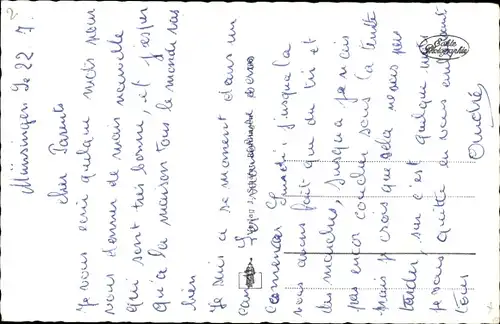 Münsingen le 22 7.
cher Parents
Je vous ecrit quelque mots pour
vous donner de mais nouvelle
qui sont tres bonne, et j'esper
qu'a la maison tous le monde vas
bien
Je suis a se moment dans un
camp
commencer Lundi, jusque la
nous avons fait que du tir et
des manches, jusqua je n'ais
pas encor coucher sous la tente
mais je crois que sela ne vas pas
tarder, sur c'est quelque mots
je vous quitte en vous embrassant
tous
André
Echte Photographie